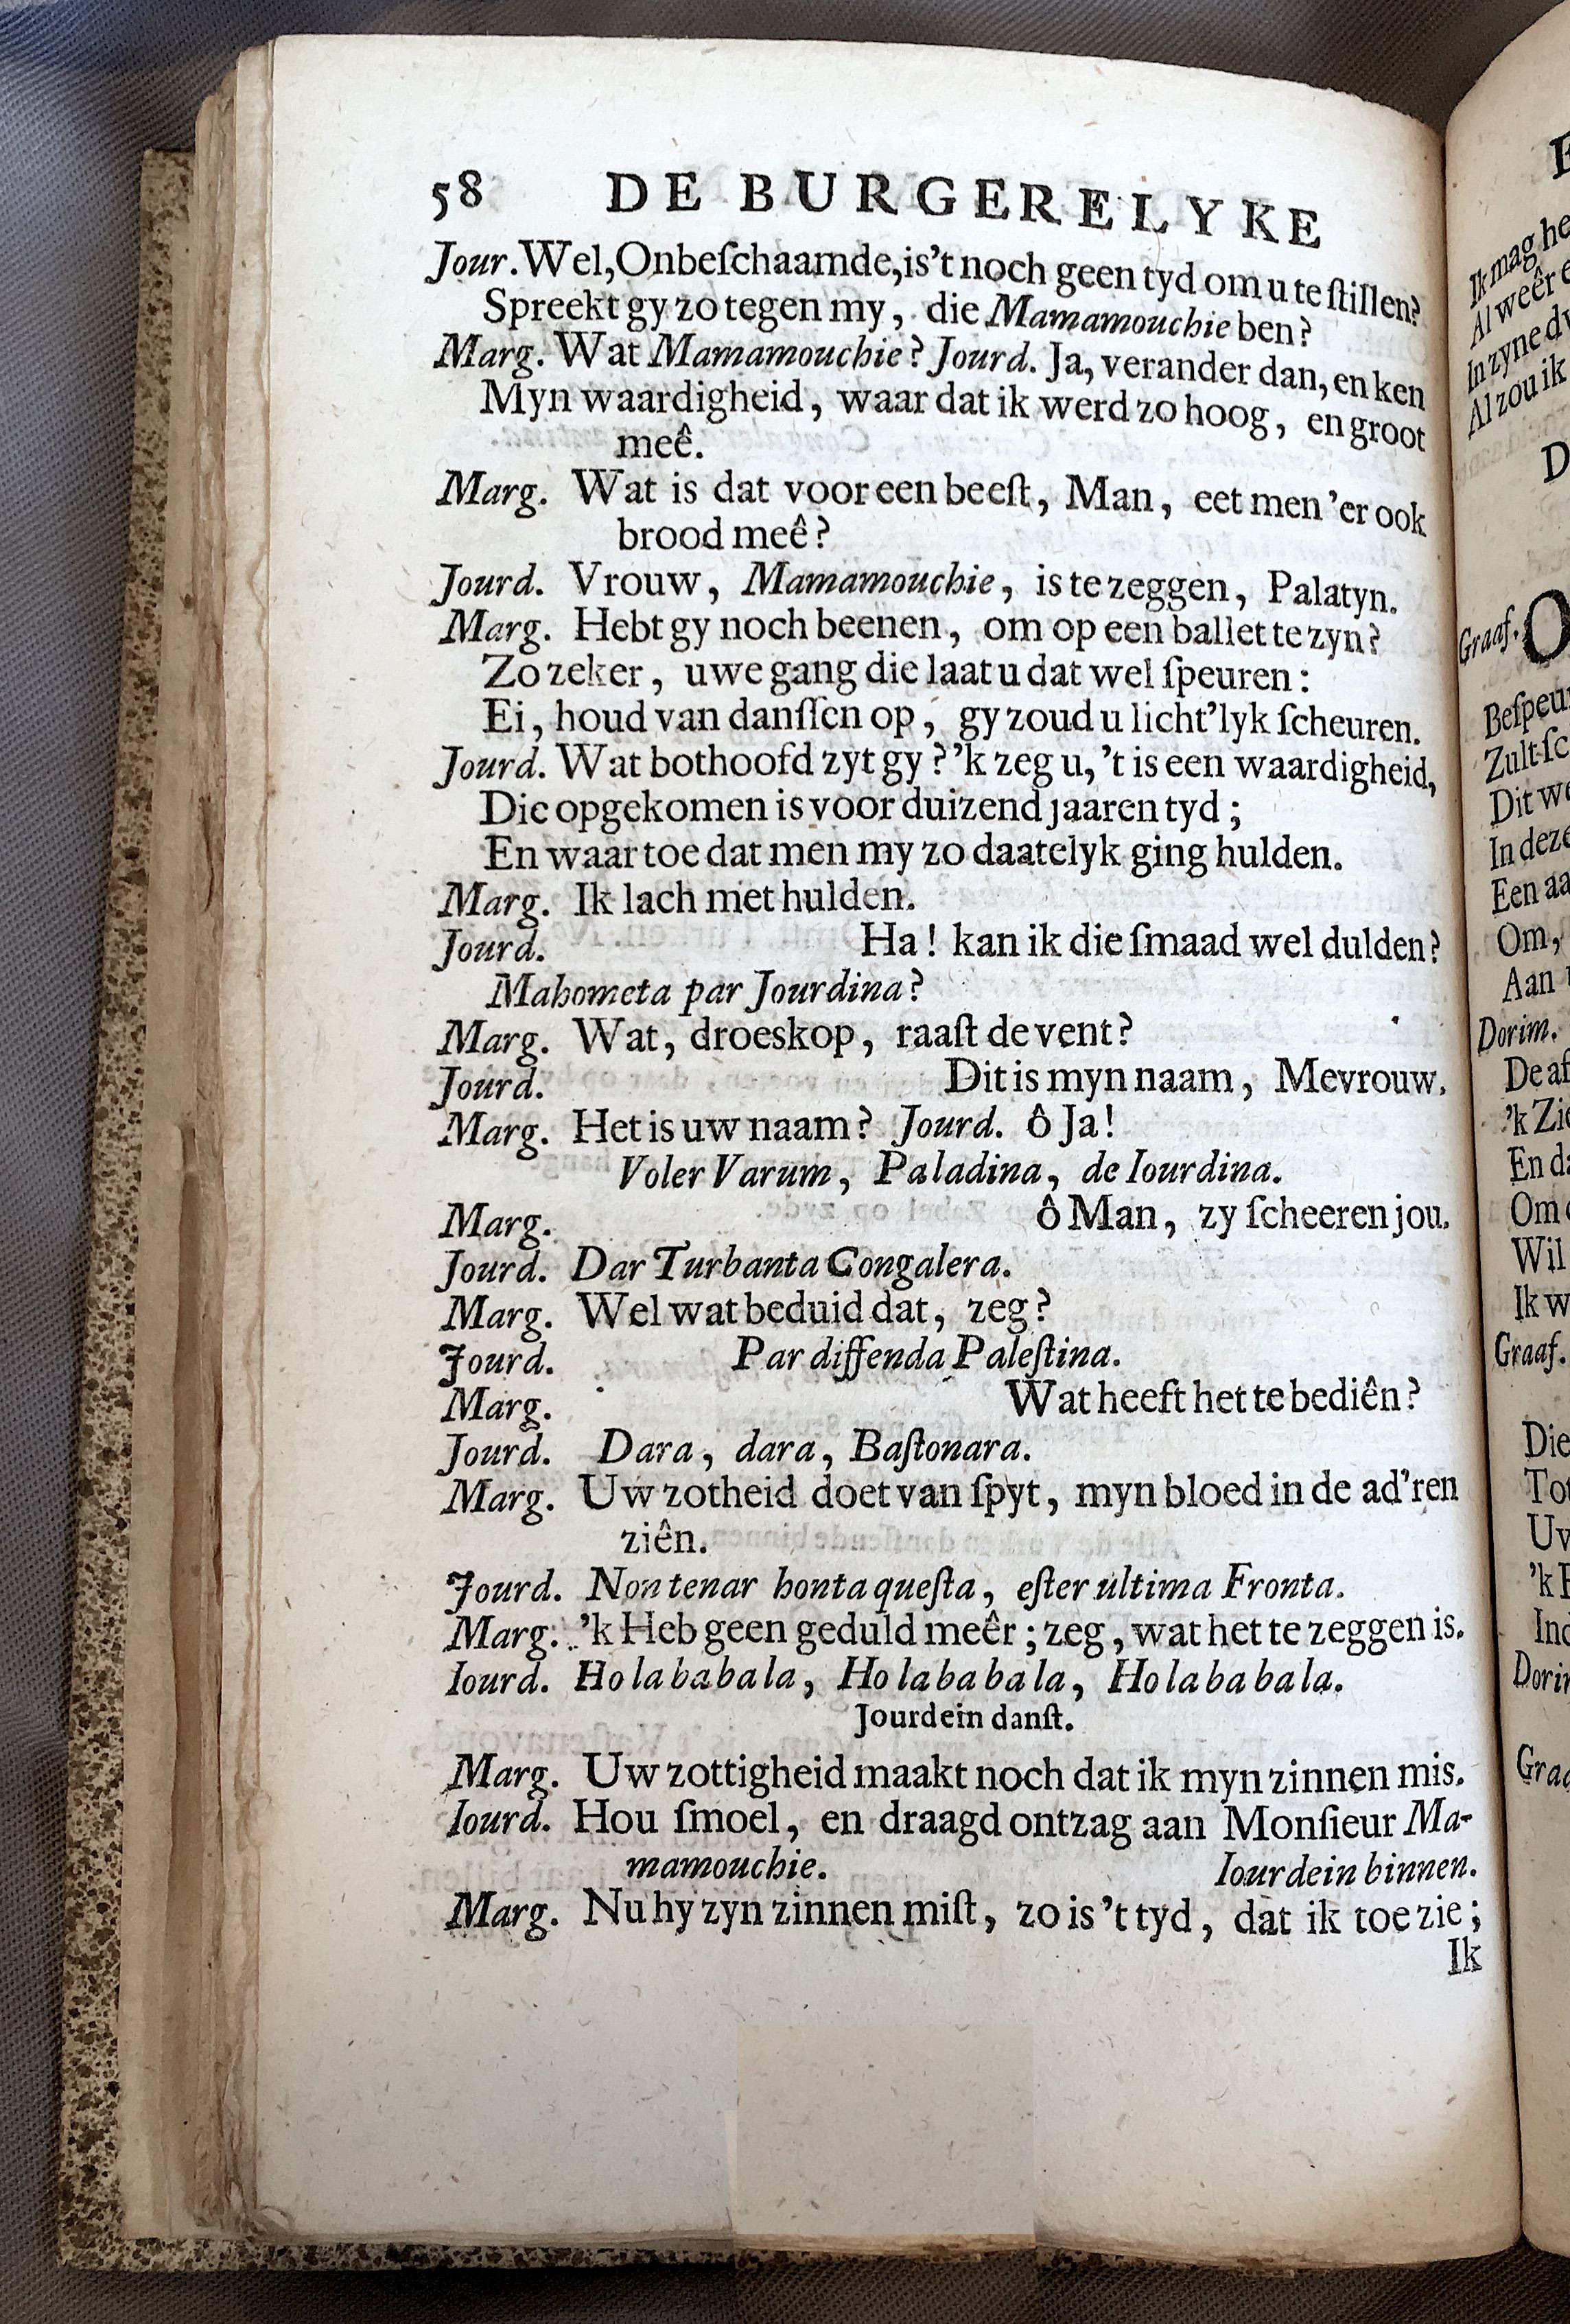 58 DE BURGERELYKE
Jour. Wel, Onbeſchaamde, is 't noch geen tyd om u te ſtillen?
Spreekt gy zo tegen my, die Mamamouchie ben?
Marg. Wat Mamamouchie? Jourd. Ja, verander dan, en ken
Myn waardigheid, waar dat ik werd zo hoog, en groot
meê.
Marg. Wat is dat voor een beeſt, Man, eet men 'er ook
brood meê?
Jourd. Vrouw, Mamamouchie, is te zeggen, Palatyn.
Marg. Hebt gy noch beenen, om op een ballet te zyn?
Zo zeker, uwe gang die laat u dat wel ſpeuren:
Ei, houd van danſſen op, gy zoud u licht'lyk ſcheuren.
Jourd. Wat bothoofd zyt gy? 'k zeg u, 't is een waardigheid,
Die opgekomen is voor duizend jaaren tyd;
En waar toe dat men my zo daatelyk ging hulden.
Marg. Ik lach met hulden.
Jourd. Ha! kan ik die ſmaad wel dulden?
Mahometa par Jourdina?
Marg. Wat, droeskop, raaſt de vent?
Jourd. Dit is myn naam, Mevrouw.
Marg. Het is uw naam? Jourd. ô Ja!
Voler Varum, Paladina, de Iourdina.
Marg. ô Man, zy ſcheeren jou.
Jourd. Dar Turbanta Congalera.
Marg. Wel wat beduid dat, zeg?
Jourd. Par diffenda Paleſtina.
Marg. Wat heeft het te bediên?
Jourd. Dara, dara, Baſtonara.
Marg. Uw zotheid doet van ſpyt, myn bloed in de ad'ren
ziên.
Jourd. Non tenar honta queſta, eſter ultima Fronta.
Marg. 'k Heb geen geduld meêr; zeg, wat het te zeggen is.
Iourd. Ho la ba ba la, Ho la ba ba la, Ho la ba ba la.
Jourdein danſt.
Marg. Uw zottigheid maakt noch dat ik myn zinnen mis.
Iourd. Hou ſmoel, en draagd ontzag aan Monſieur Ma-
mamouchie. Iourdein binnen.
Marg. Nu hy zyn zinnen miſt, zo is 't tyd, dat ik toe zie;
Ik
Ik mag
Al weêr
In zyne
Al zou ik
Graaf. O
Zult
Dit
In deze
Een
Om,
Aan
Dorim.
De
'k
En
Om
Wil
Ik
Graaf.
Die